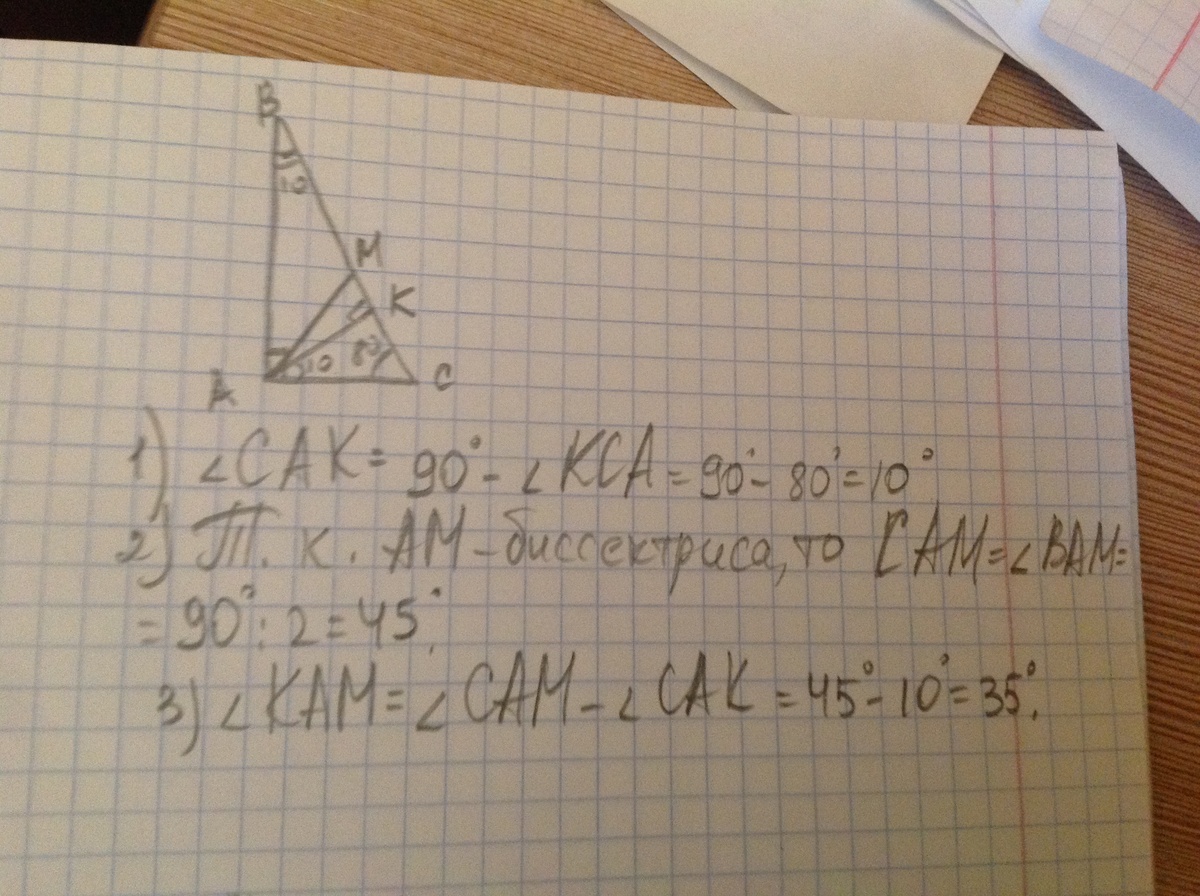 B
10
M
K
10 80
A C
1) ∠CAK = 90° - ∠KCA = 90° - 80° = 10°
2) Т. к. AM - биссектриса, то [AM = ∠BAM =
= 90° : 2 = 45°.
3) ∠KAM = ∠CAM - ∠CAK = 45° - 10° = 35°.